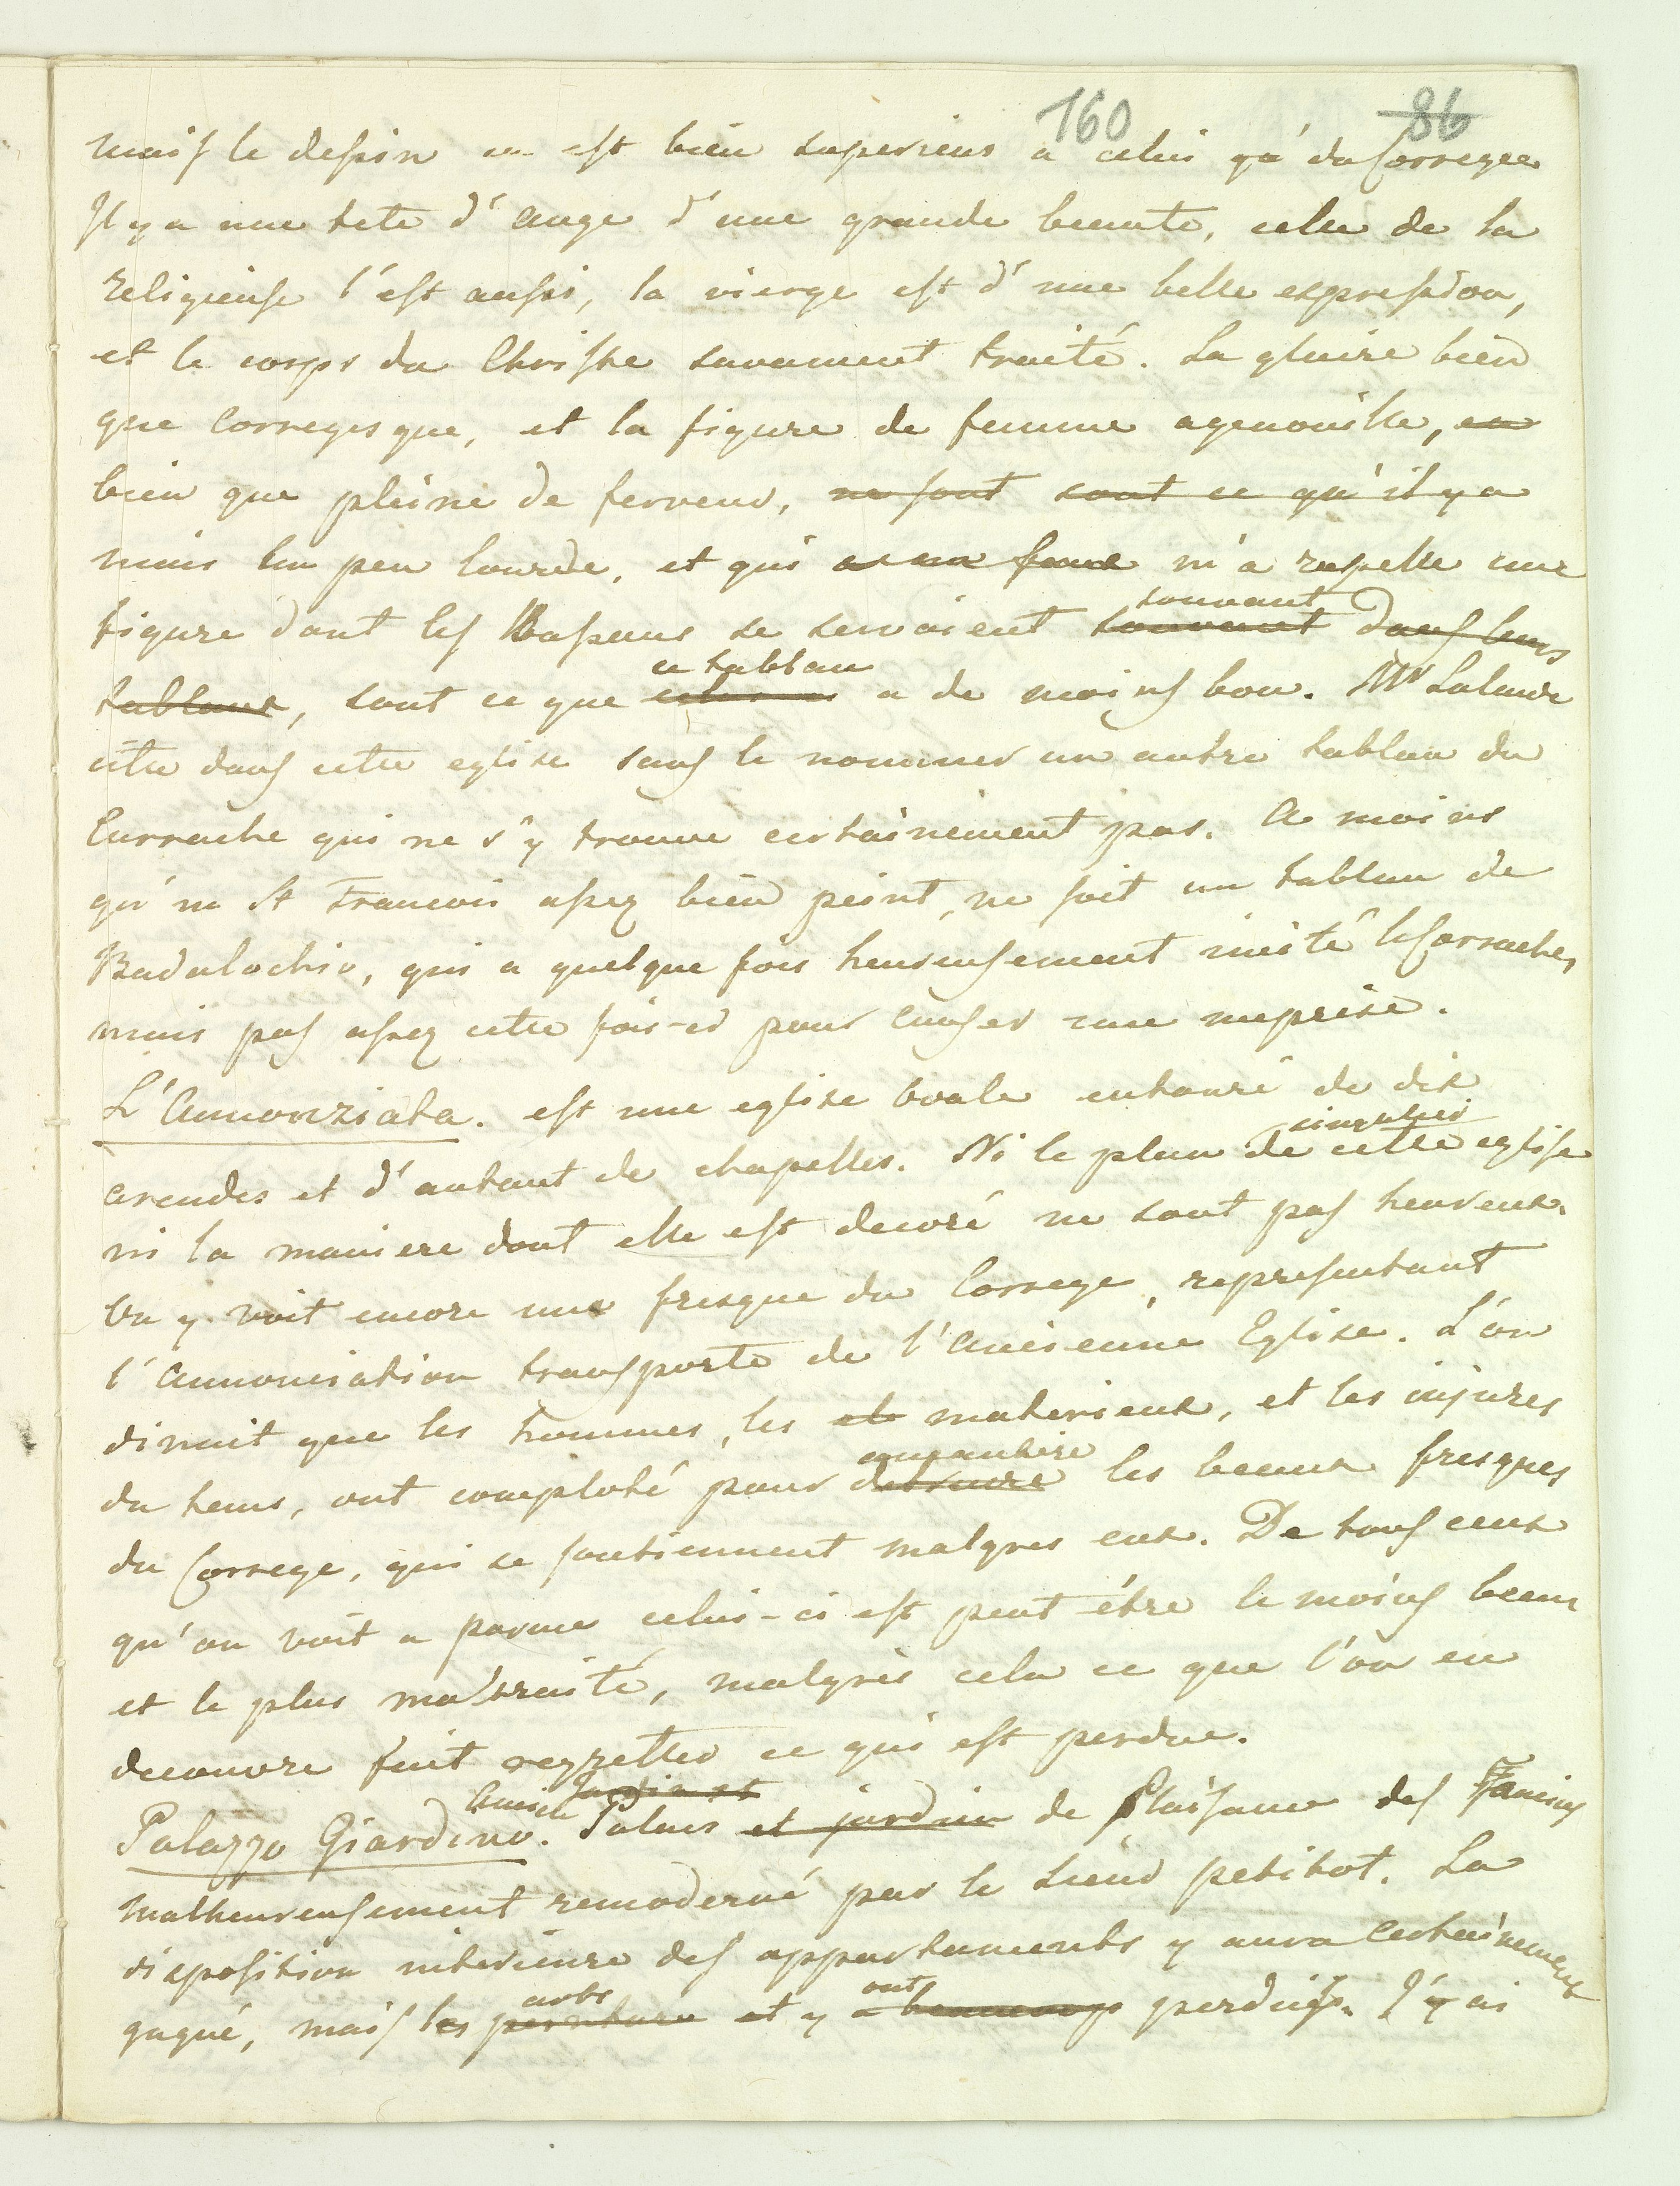 160 86
mais le dessin en est bien superieur a celui qu'a du Correge
Il y a une tete d'ange d'une grande beauté, celle de la
religieuse l'est aussi, la vierge est d'une belle expression,
et le corps du Christe savament traité. La gloire bien
que Corregesque, et la figure de femme agenouillé, en
bien que pleine de ferveur, ne sont sont ce qu'il y a
mais un peu lourde, et qui m'a rapelle une
souvant
figure dont les Bassans se servoient souvent dans leurs
ce tableau
tableaux, sont ce que a de moins bon. Mr Lalande
cite dans cette eglise sans le nommer un autre tableau du
Carrache qui ne s'y trouve certainement pas. A moins
qu'un St Francois assez bien peint, ne soit un tableau de
Badalochio, qui a quelque fois heureusement imité les Carraches,
mais pas assez cette fois-ci pour causer une meprise.
L'Annonziata. est une eglise ovale entouré de dix
singulier
arcades et d'autant de chapelles. Ni le plan de cette eglise
ni la maniere dont elle est decoré ne sont pas heureux.
On y voit encore une fresque du Correge, representant
l'annonciation transporté de l'anciene Eglise. L'on
diroit que les hommes, les et materieux, et les injures
aneantire
du tems, ont comploté pour detruire les beaux fresques
du Correge, qui se soutiennent malgres eux. De tous ceux
qu'on voit a parme celui-ci est peut être le moins beau
et le plus maltraité, malgrés cela ce que l'on en
decouvre fait regretter ce qui est perdue.
Ancien Jardin et
Palazzo Giardino. Palais et jardin de Plaisance des Farneses
malheureusement remoderné par le Sieur petitot. La
disposition interieure des appartements y aura certainement
arts ont
gagné, mais les peinture et y a beaucoup perduës. J'y ai